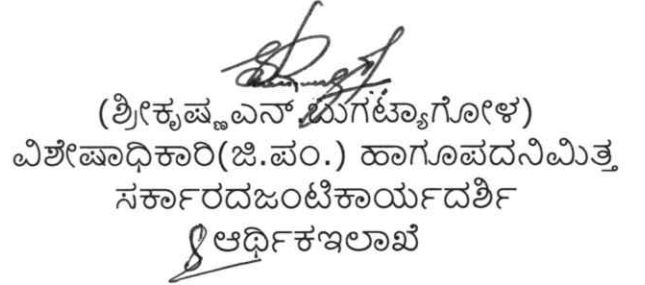 (ಶ್ರೀಕೃಷ್ಣಎನ್.ಬುಗಟ್ಯಾಗೋಳ)
ವಿಶೇಷಾಧಿಕಾರಿ(ಜಿ.ಪಂ.) ಹಾಗೂಪದನಿಮಿತ್ತ
ಸರ್ಕಾರದಜಂಟಿಕಾರ್ಯದರ್ಶಿ
ಆರ್ಥಿಕಇಲಾಖೆ